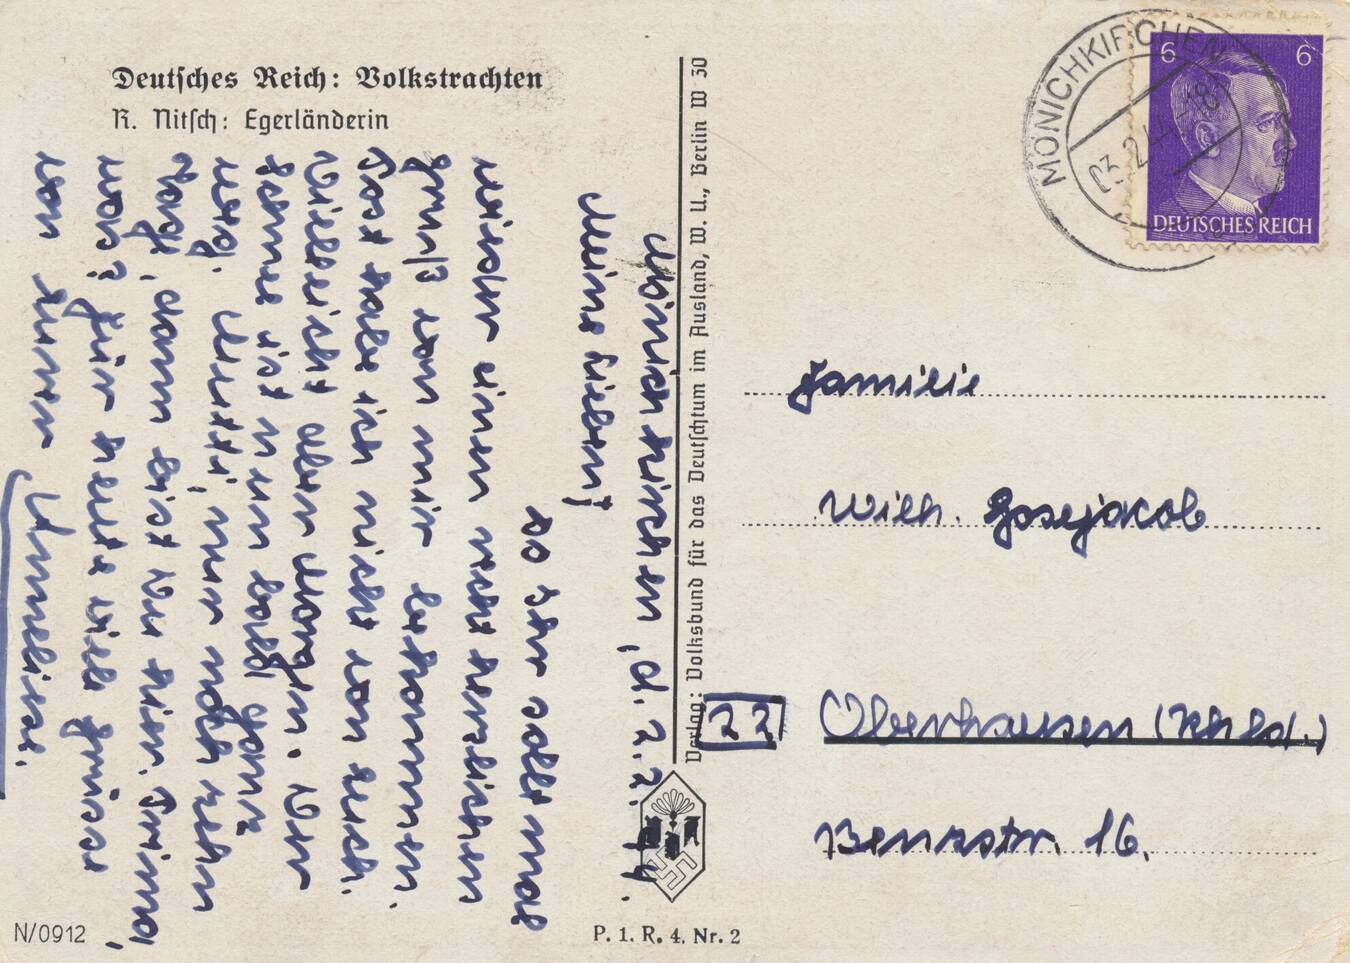 Deutsches Reich: Volkstrachten
R. Nitsch: Egerländerin
Mönichkirchen, d. 2.2.44.
Meine Lieben!
So Ihr sollt mal
wieder einen recht herzlichen
Gruß von mir bekommen.
Post habe ich nicht von Euch.
Vielleicht aber Morgen. Der
Schnee ist nun bald ganz
weg. Mutti, nur noch zehn
Tage, dann bist Du hier. Prima,
was? Für heute viele Grüsse
von Eurer Anneliese.
Verlag: Volksbund für das Deutschtum im Ausland, W. U., Berlin W 30
MÖNICHKIRCHEN
03.2.44-18
6 6
DEUTSCHES REICH
Familie
Wilh. Gosejacob
22 Oberhausen (Rhld.)
Benzstr. 16.
N/0912
P. 1. R. 4. Nr. 2